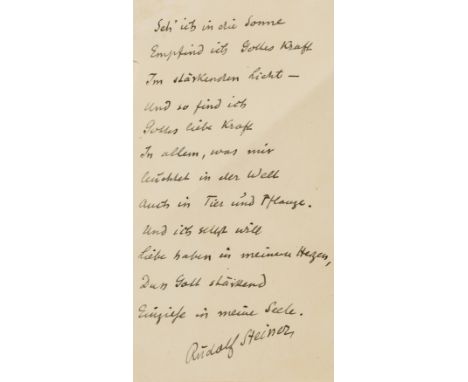 Seh' ich in die Sonne
Empfind ich Gottes Kraft
Im stärkenden Licht —
Und so find ich
Gottes liebe Kraft
In allem, was mir
leuchtet in der Welt
Auch in Tier und Pflanze.
Und ich selbst will
Liebe haben in meinem Herzen,
Dass Gott stärkend
Eingieße in meine Seele.
Rudolf Steiner